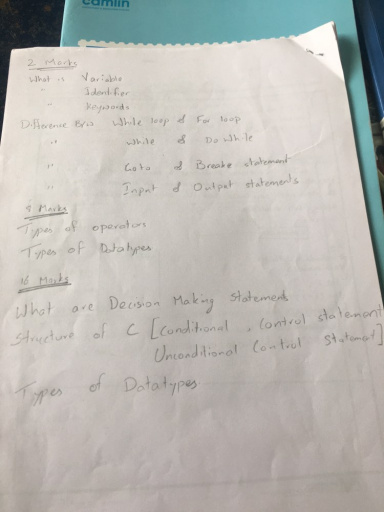 camlin
2 Marks
What is Variable
" Identifier
" Keywords
Difference B/w While loop & For loop
" While & Do While
" Goto & Breake statement
" Input & Output statements
8 Marks
Types of operators
Types of Datatypes
16 Marks
What are Decision Making Statements
Structure of C [Conditional, Control statement
Unconditional Control Statement]
Types of Datatypes